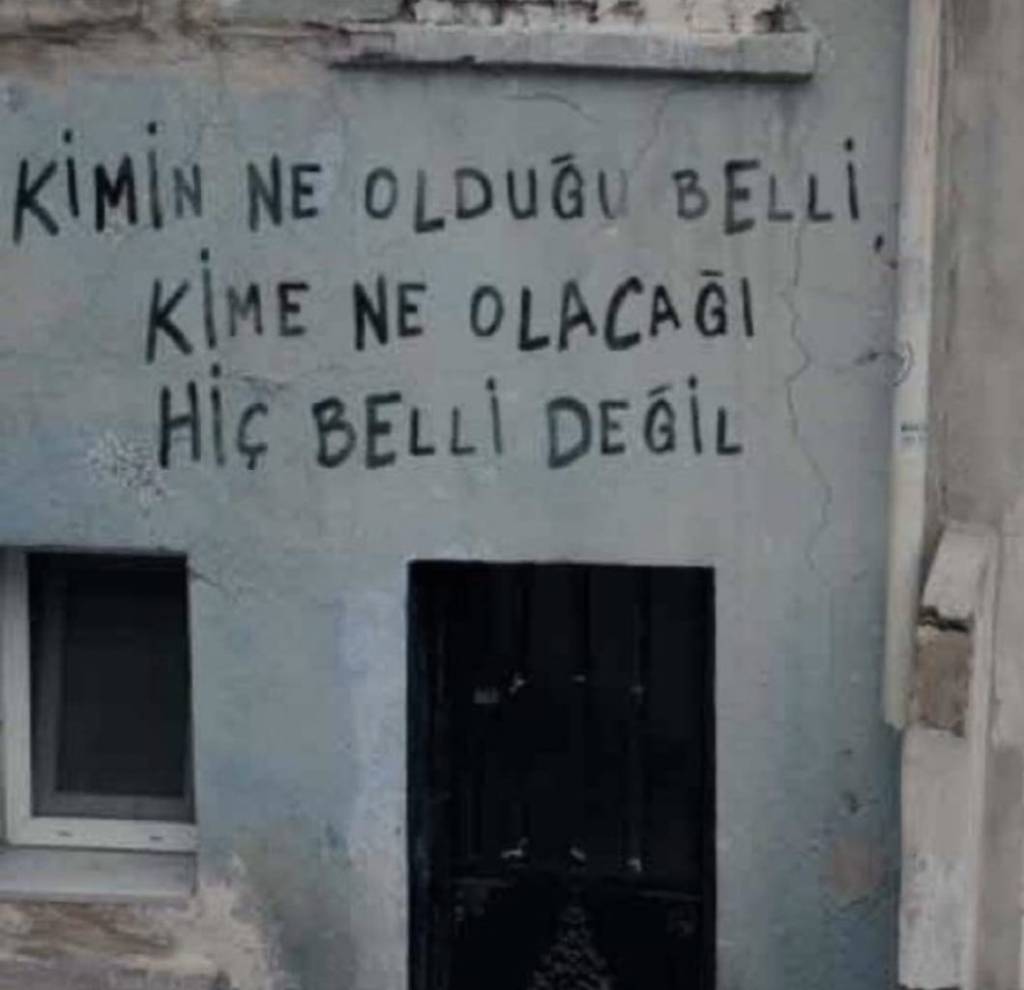 KİMİN NE OLDUĞU BELLİ,
KİME NE OLACAĞI
HİÇ BELLİ DEĞİL